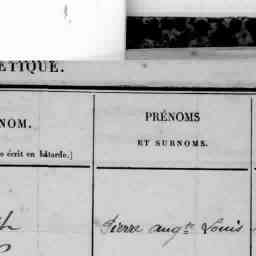 ÉTIQUE.
NOM.
PRÉNOMS
ET SURNOMS.
e écrit en bâtarde.]
Pierre augte Louis